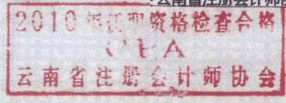 云南省注册会计师
2010年任职资格检查合格
CPA
云南省注册会计师协会